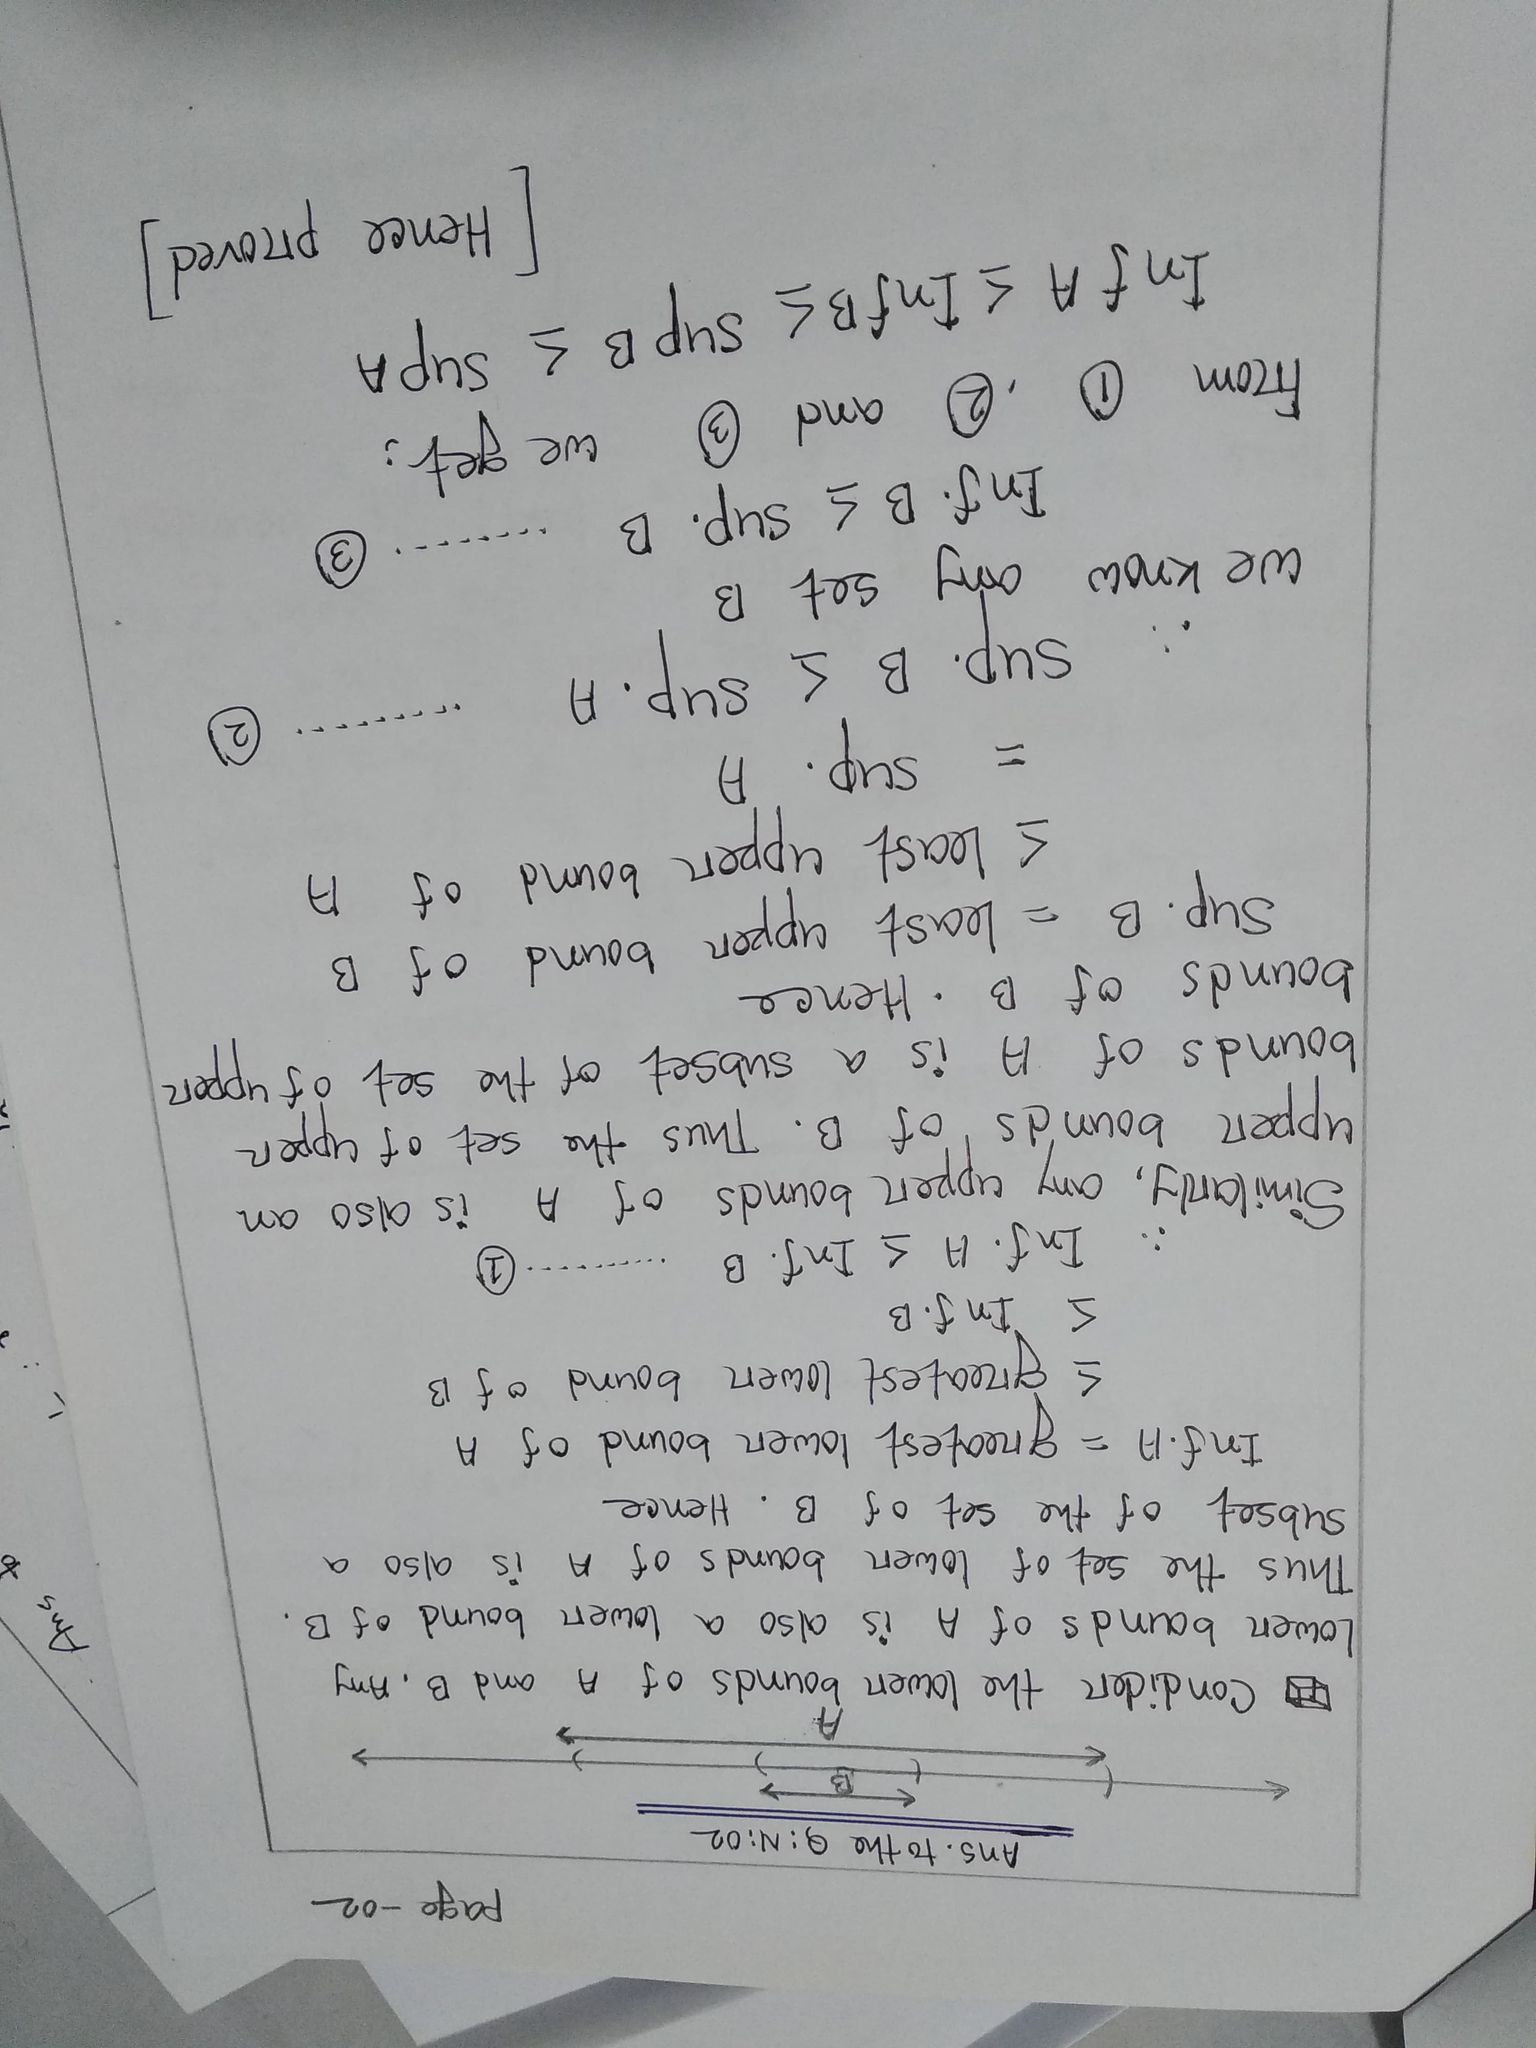 page -02
Ans. to the Q:N:02
B
A
Condider the lower bounds of A and B. Any
Lower bounds of A is also a lower bound of B.
Thus the set of lower bounds of A is also a
subset of the set of B. Hence
Inf. A = greatest lower bound of A
≤ greatest lower bound of B
≤ Inf. B
∴ Inf. A ≤ Inf. B .......... ①
Similarly, any upper bounds of A is also an
upper bounds of B. Thus the set of upper
bounds of A is a subset of the set of upper
bounds of B. Hence
Sup. B = least upper bound of B
≤ least upper bound of A
= sup. A
∴ sup. B ≤ sup. A .......... ②
we know any set B
Inf. B ≤ sup. B .......... ③
From ①, ② and ③ we get;
Inf A ≤ Inf B ≤ sup B ≤ sup A
[Hence proved]
Ans